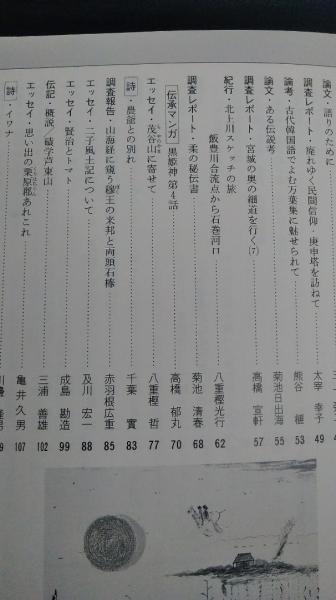 論文・語りのために
調査レポート・廃れゆく民間信仰・庚申塔を訪ねて 太宰 幸子 49
論考・古代韓国語でよむ万葉集に魅せられて 熊谷 53
論文・ある伝説考 菊池日出海 55
調査レポート・宮城の奥の細道を行く(7) 高橋 宣軒 57
紀行・北上川スケッチの旅
飯豊川合流点から石巻河口 八重樫光行 62
調査レポート・柔の秘伝書 菊池 清春 68
伝承マンガ 黒姫神 第4話 高橋 郁丸 70
エッセイ・茂谷山に寄せて 八重樫 哲 77
詩・農龍との別れ 千葉 實 83
調査報告・山海経に窺う穆王の来邦と両頭石棒 赤羽根広重 85
エッセイ・二子風土記について 及川 宏一 88
エッセイ・賢治とトマト 成島 勘造 99
伝記・概説/碩学芦東山 三浦 善雄 102
エッセイ・思い出の栗原郡あれこれ 亀井久男 107
詩・イワナ